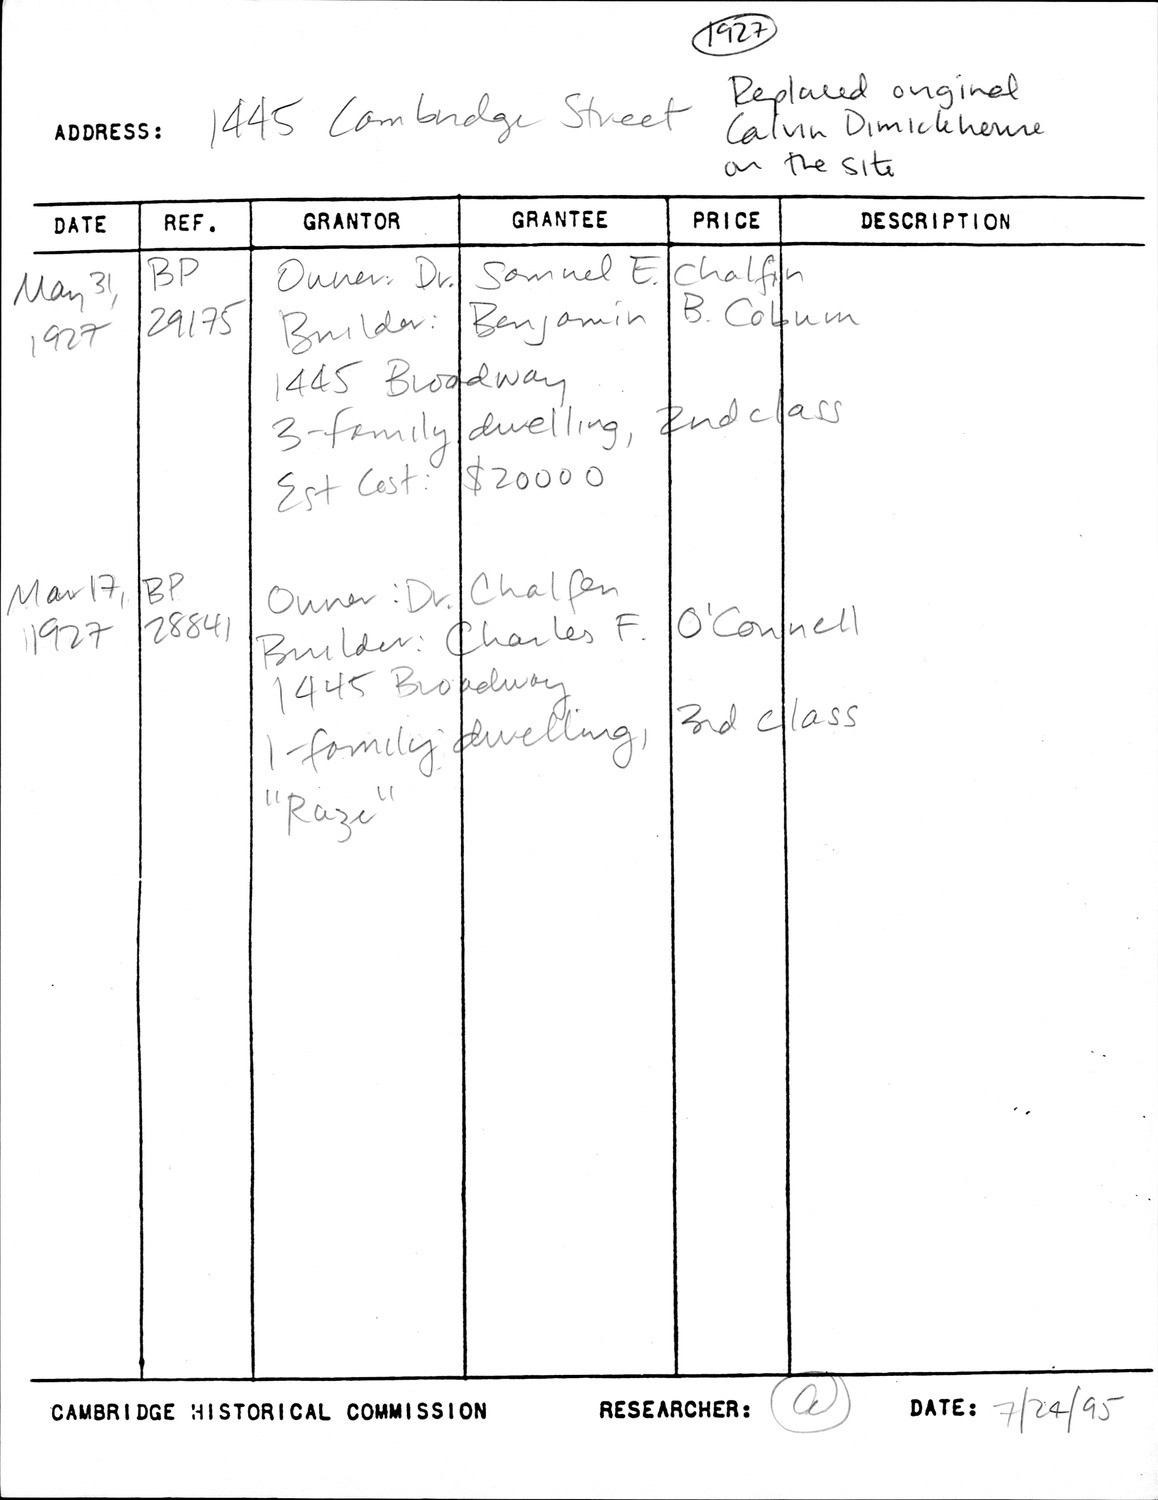 1927
Replaced original
Calvin Dimick house
on the site
ADDRESS: 1445 Cambridge Street
DATE REF. GRANTOR GRANTEE PRICE DESCRIPTION
May 31, BP Owner: Dr. Samuel E. Chalfin
1927 29175 Builder: Benjamin B. Coburn
1445 Broadway
3-family dwelling, 2nd class
Est Cost: $20000
Mar 17, BP Owner: Dr. Chalfen
1927 28841 Builder: Charles F. O'Connell
1445 Broadway
1-family dwelling, 3rd class
"Raze"
CAMBRIDGE HISTORICAL COMMISSION RESEARCHER: DATE: 7/24/95